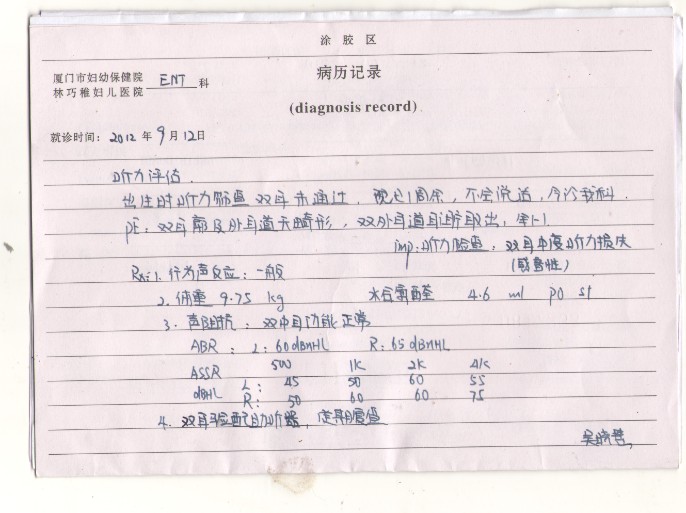 涂胶区
厦门市妇幼保健院 ENT 科
林巧稚妇儿医院
病历记录
(diagnosis record)
就诊时间: 2012 年 9 月 12 日
听力评估.
出生时听力筛查双耳未通过, 现已1周余, 不会说话, 今诊我科.
PE: 双耳廓及外耳道无畸形, 双外耳道耵聍取出,
imp: 听力检查: 双耳中度听力损失
(感音性)
Rx: 1. 行为声反应: 一般
2. 体重 9.75 kg 水合氯醛 4.6 ml po st
3. 声阻抗: 双中耳功能正常
ABR: L: 60dBnHL R: 65dBnHL
ASSR 500 1K 2K 4K
dBHL L: 45 50 60 55
R: 50 60 60 75
4. 双耳验配助听器, 定期复查